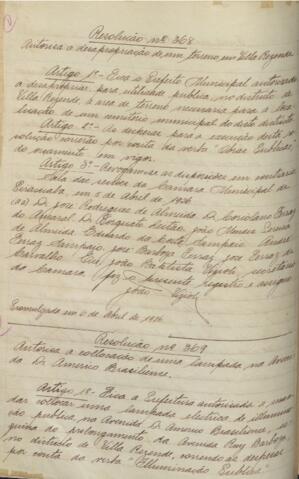 Resolução nº 368
Autorisa a desapropriação de um terreno, em Villa Rezende.
Artigo 1º - Fica o Prefeito Municipal autorisado
a desapropriar, para utilidade publica, no districto de
Villa Rezende, a area de terreno necessaria para a loca-
lisação de um cemiterio municipal do dito districto.
Artigo 2º - As despezas para a execução desta re-
solução correrão por conta da verba "Obras Publicas",
do orçamento em vigor.
Artigo 3º - Revogam-se as disposições em contrario.
Sala das sessões da Camara Municipal de
Piracicaba, em 5 de Abril de 1926.
(aa) Dr. José Rodrigues de Almeida, Dr. Coriolano Ferraz
do Amaral, Dr. Torquato Leitão, João Mendes Pereira
de Almeida, Sampaio, André
Ferraz Sampaio, José Barbosa Ferraz, José Ferraz de
Carvalho. Eu, João Baptista Vizioli, secretario
da Camara fiz o presente registro e assigno.
João Vizioli
Promulgada em 6 de Abril de 1926.
Resolução nº 369
Autorisa a collocação de uma lampada na Aveni-
da Dr. Americo Brasiliense.
Artigo 1º - Fica a Prefeitura autorisada a man-
dar collocar uma lampada electrica de illumina-
ção publica, na Avenida Dr. Americo Brasiliense, es-
quina do prolongamento da Avenida Ruy Barbosa,
no districto de Villa Rezende, correndo as despezas
por conta da verba "Illuminação Publica".